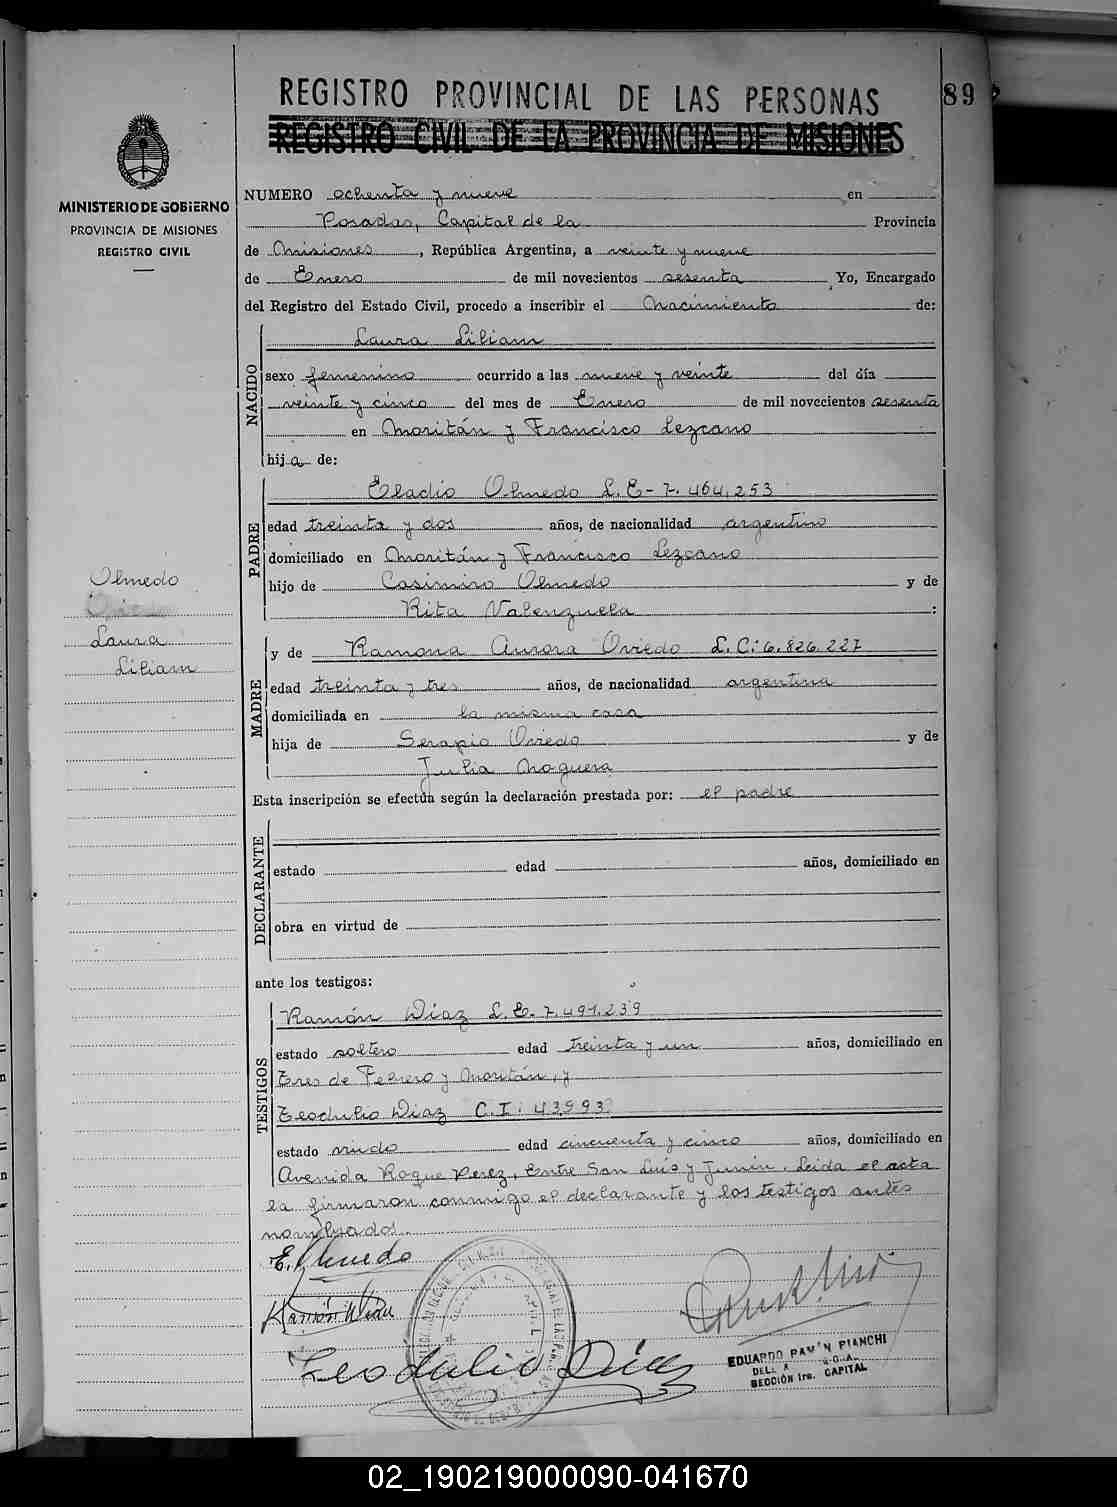 REGISTRO PROVINCIAL DE LAS PERSONAS
89
REGISTRO CIVIL DE LA PROVINCIA DE MISIONES
MINISTERIO DE GOBIERNO
PROVINCIA DE MISIONES
REGISTRO CIVIL
NUMERO ochenta y nueve en
Posadas, Capital de la Provincia
de Misiones, República Argentina, a veinte y nueve
de Enero de mil novecientos sesenta Yo, Encargado
del Registro del Estado Civil, procedo a inscribir el Nacimiento de:
NACIDO
Laura Liliam
sexo femenino ocurrido a las nueve y veinte del día
veinte y cinco del mes de Enero de mil novecientos sesenta
en Moritán y Francisco Lezcano
hija de:
PADRE
Eladio Olmedo L.E-7.464,253
edad treinta y dos años, de nacionalidad argentino
domiciliado en Moritán y Francisco Lezcano
hijo de Casimiro Olmedo y de
Rita Valenzuela :
Olmedo
Laura
Liliam
MADRE
y de Ramona Aurora Oviedo L.C: 6.826.227
edad treinta y tres años, de nacionalidad argentina
domiciliada en la misma casa
hija de Serapio Oviedo y de
Julia Noguera
Esta inscripción se efectúa según la declaración prestada por: el padre
DECLARANTE
estado edad años, domiciliado en
obra en virtud de
ante los testigos:
TESTIGOS
Ramón Diaz L.E.7.491.239
estado soltero edad treinta y un años, domiciliado en
Tres de Febrero y Moritán, y
Teodulio Diaz C.I: 43993
estado viudo edad cincuenta y cinco años, domiciliado en
Avenida Roque Perez, Entre San Luis y Junin. Leida el acta
la firmaron conmigo el declarante y los testigos antes
nombrados.
E. Olmedo
Ramón Diaz
Teodulio Diaz
EDUARDO RAMON PIANCHI
SECCIÓN 1ra. CAPITAL
02_190219000090-041670